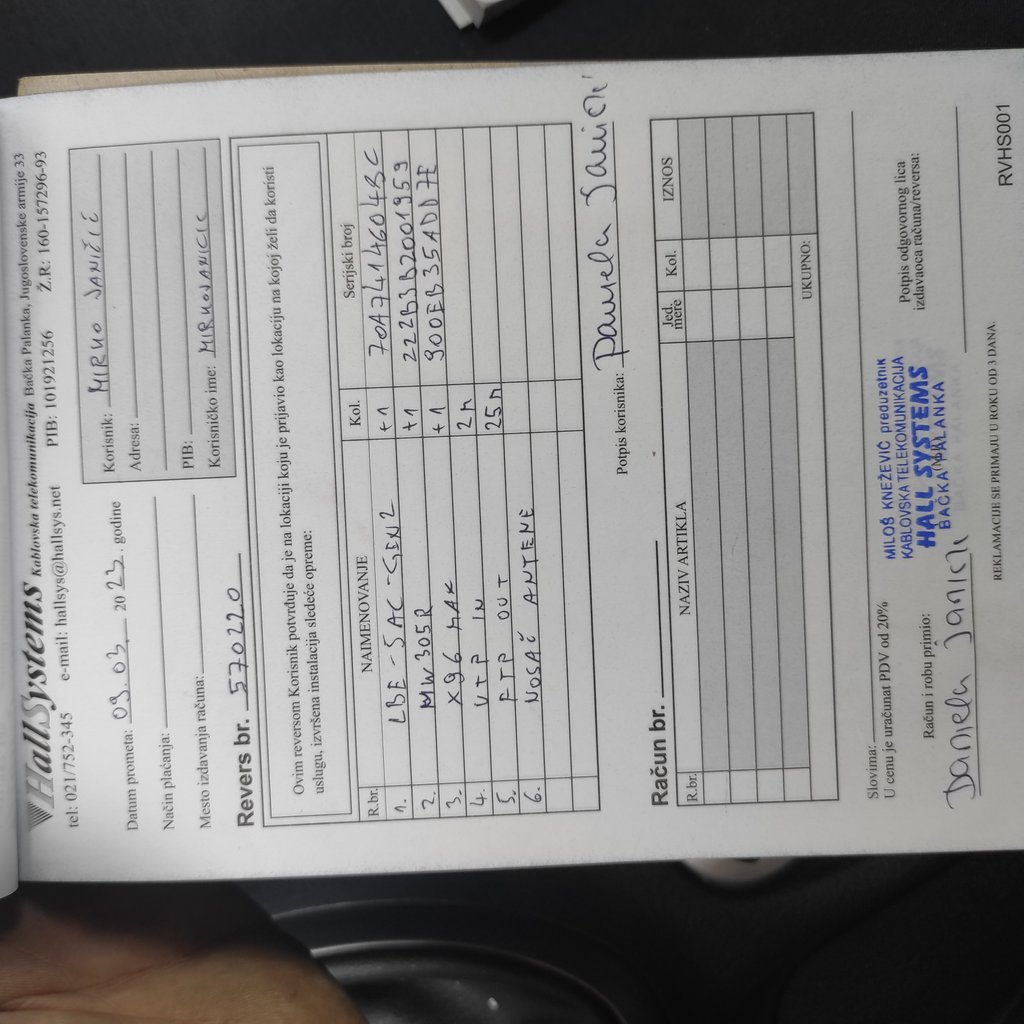 HallSystems Kablovska telekomunikacija Bačka Palanka, Jugoslovenske armije 33
tel: 021/752-345 e-mail: hallsys@hallsys.net PIB: 101921256 Ž.R: 160-157296-93
Datum prometa: 09.03. 2023. godine
Način plaćanja:
Mesto izdavanja računa:
Korisnik: MIRKO JANIČIĆ
Adresa:
PIB:
Korisničko ime: MIRKOJANICIC
Revers br. 570220
Ovim reversom Korisnik potvrđuje da je na lokaciji koju je prijavio kao lokaciju na kojoj želi da koristi
uslugu, izvršena instalacija sledeće opreme:
R.br. NAIMENOVANJE Kol. Serijski broj
1. LBE-5AC-GEN2 +1 70A7414604BC
2. MW305R +1 222B3B2001959
3. X96 MAX +1 900EB35ADD7E
4. UTP IN 2m
5. FTP OUT 25m
6. NOSAČ ANTENE
Potpis korisnika: Daniela Janičić
Račun br.
R.br. NAZIV ARTIKLA Jed. mere Kol. IZNOS
UKUPNO:
Slovima:
U cenu je uračunat PDV od 20%
Račun i robu primio:
Daniela Janičić
MILOŠ KNEŽEVIĆ preduzetnik
KABLOVSKA TELEKOMUNIKACIJA
HALL SYSTEMS
BAČKA PALANKA
Potpis odgovornog lica
izdavaoca računa/reversa:
REKLAMACIJE SE PRIMAJU U ROKU OD 3 DANA.
RVHS001